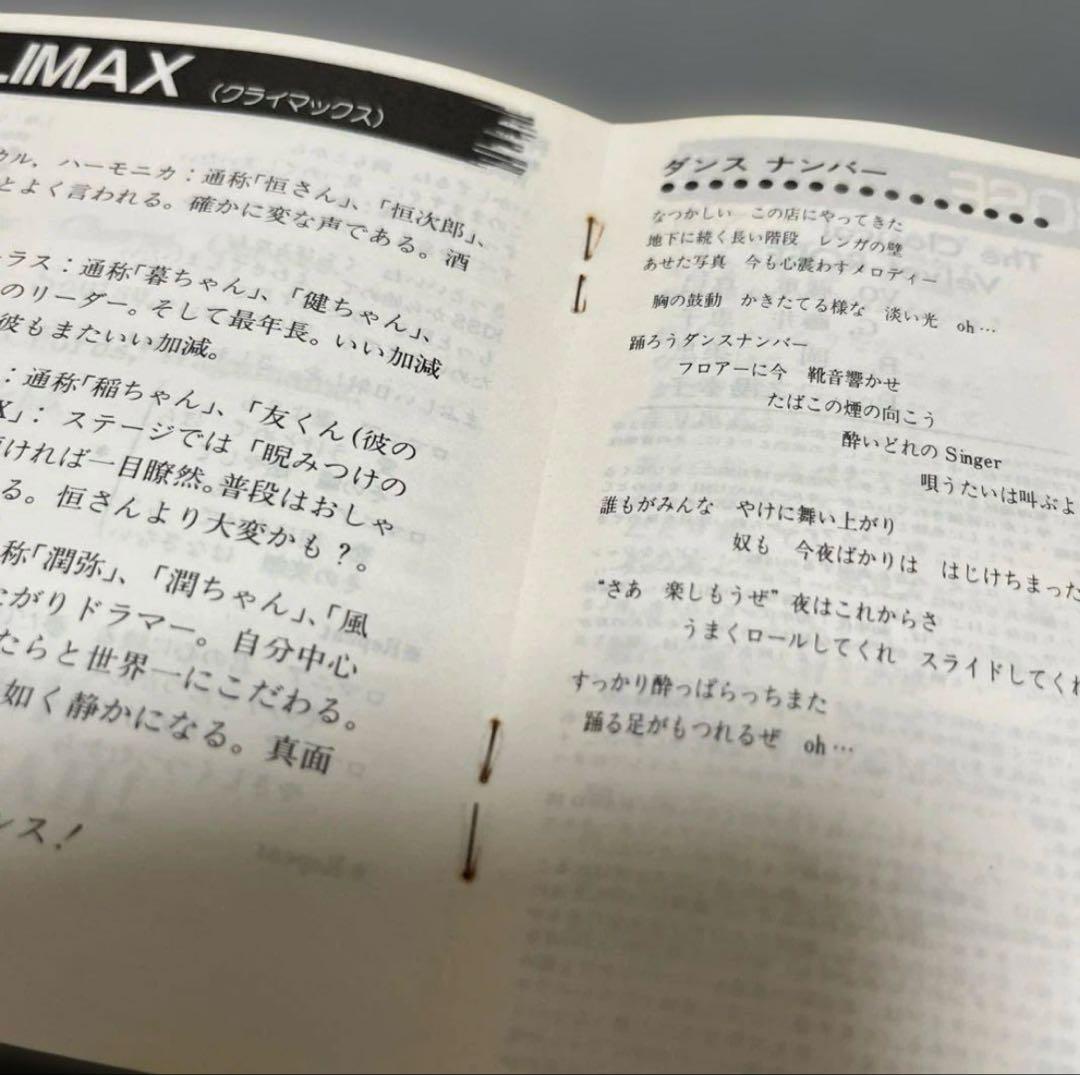 LIMAX (クライマックス)
ハーモニカ：通称「恒さん」、「恒次郎」、
とよく言われる。確かに変な声である。酒
ーラス：通称「暮ちゃん」、「健ちゃん」、
のリーダー。そして最年長。いい加減
彼もまたいい加減。
：通称「稲ちゃん」、「友くん(彼の
X」：ステージでは「睨みつけの
ければ一目瞭然。普段はおしゃ
る。恒さんより大変かも？。
称「潤弥」、「潤ちゃん」、「風
がりドラマー。自分中心
たらと世界一にこだわる。
如く静かになる。真面
ンス！
ダンス ナンバー
なつかしい この店にやってきた
地下に続く長い階段 レンガの壁
あせた写真 今も心震わすメロディー
胸の鼓動 かきたてる様な 淡い光 oh…
踊ろうダンスナンバー
フロアーに今 靴音響かせ
たばこの煙の向こう
酔いどれのSinger
唄うたいは叫ぶよ
誰もがみんな やけに舞い上がり
奴も 今夜ばかりは はじけちまった
“さあ 楽しもうぜ”夜はこれからさ
うまくロールしてくれ スライドしてくれ
すっかり酔っぱらっちまた
踊る足がもつれるぜ oh…